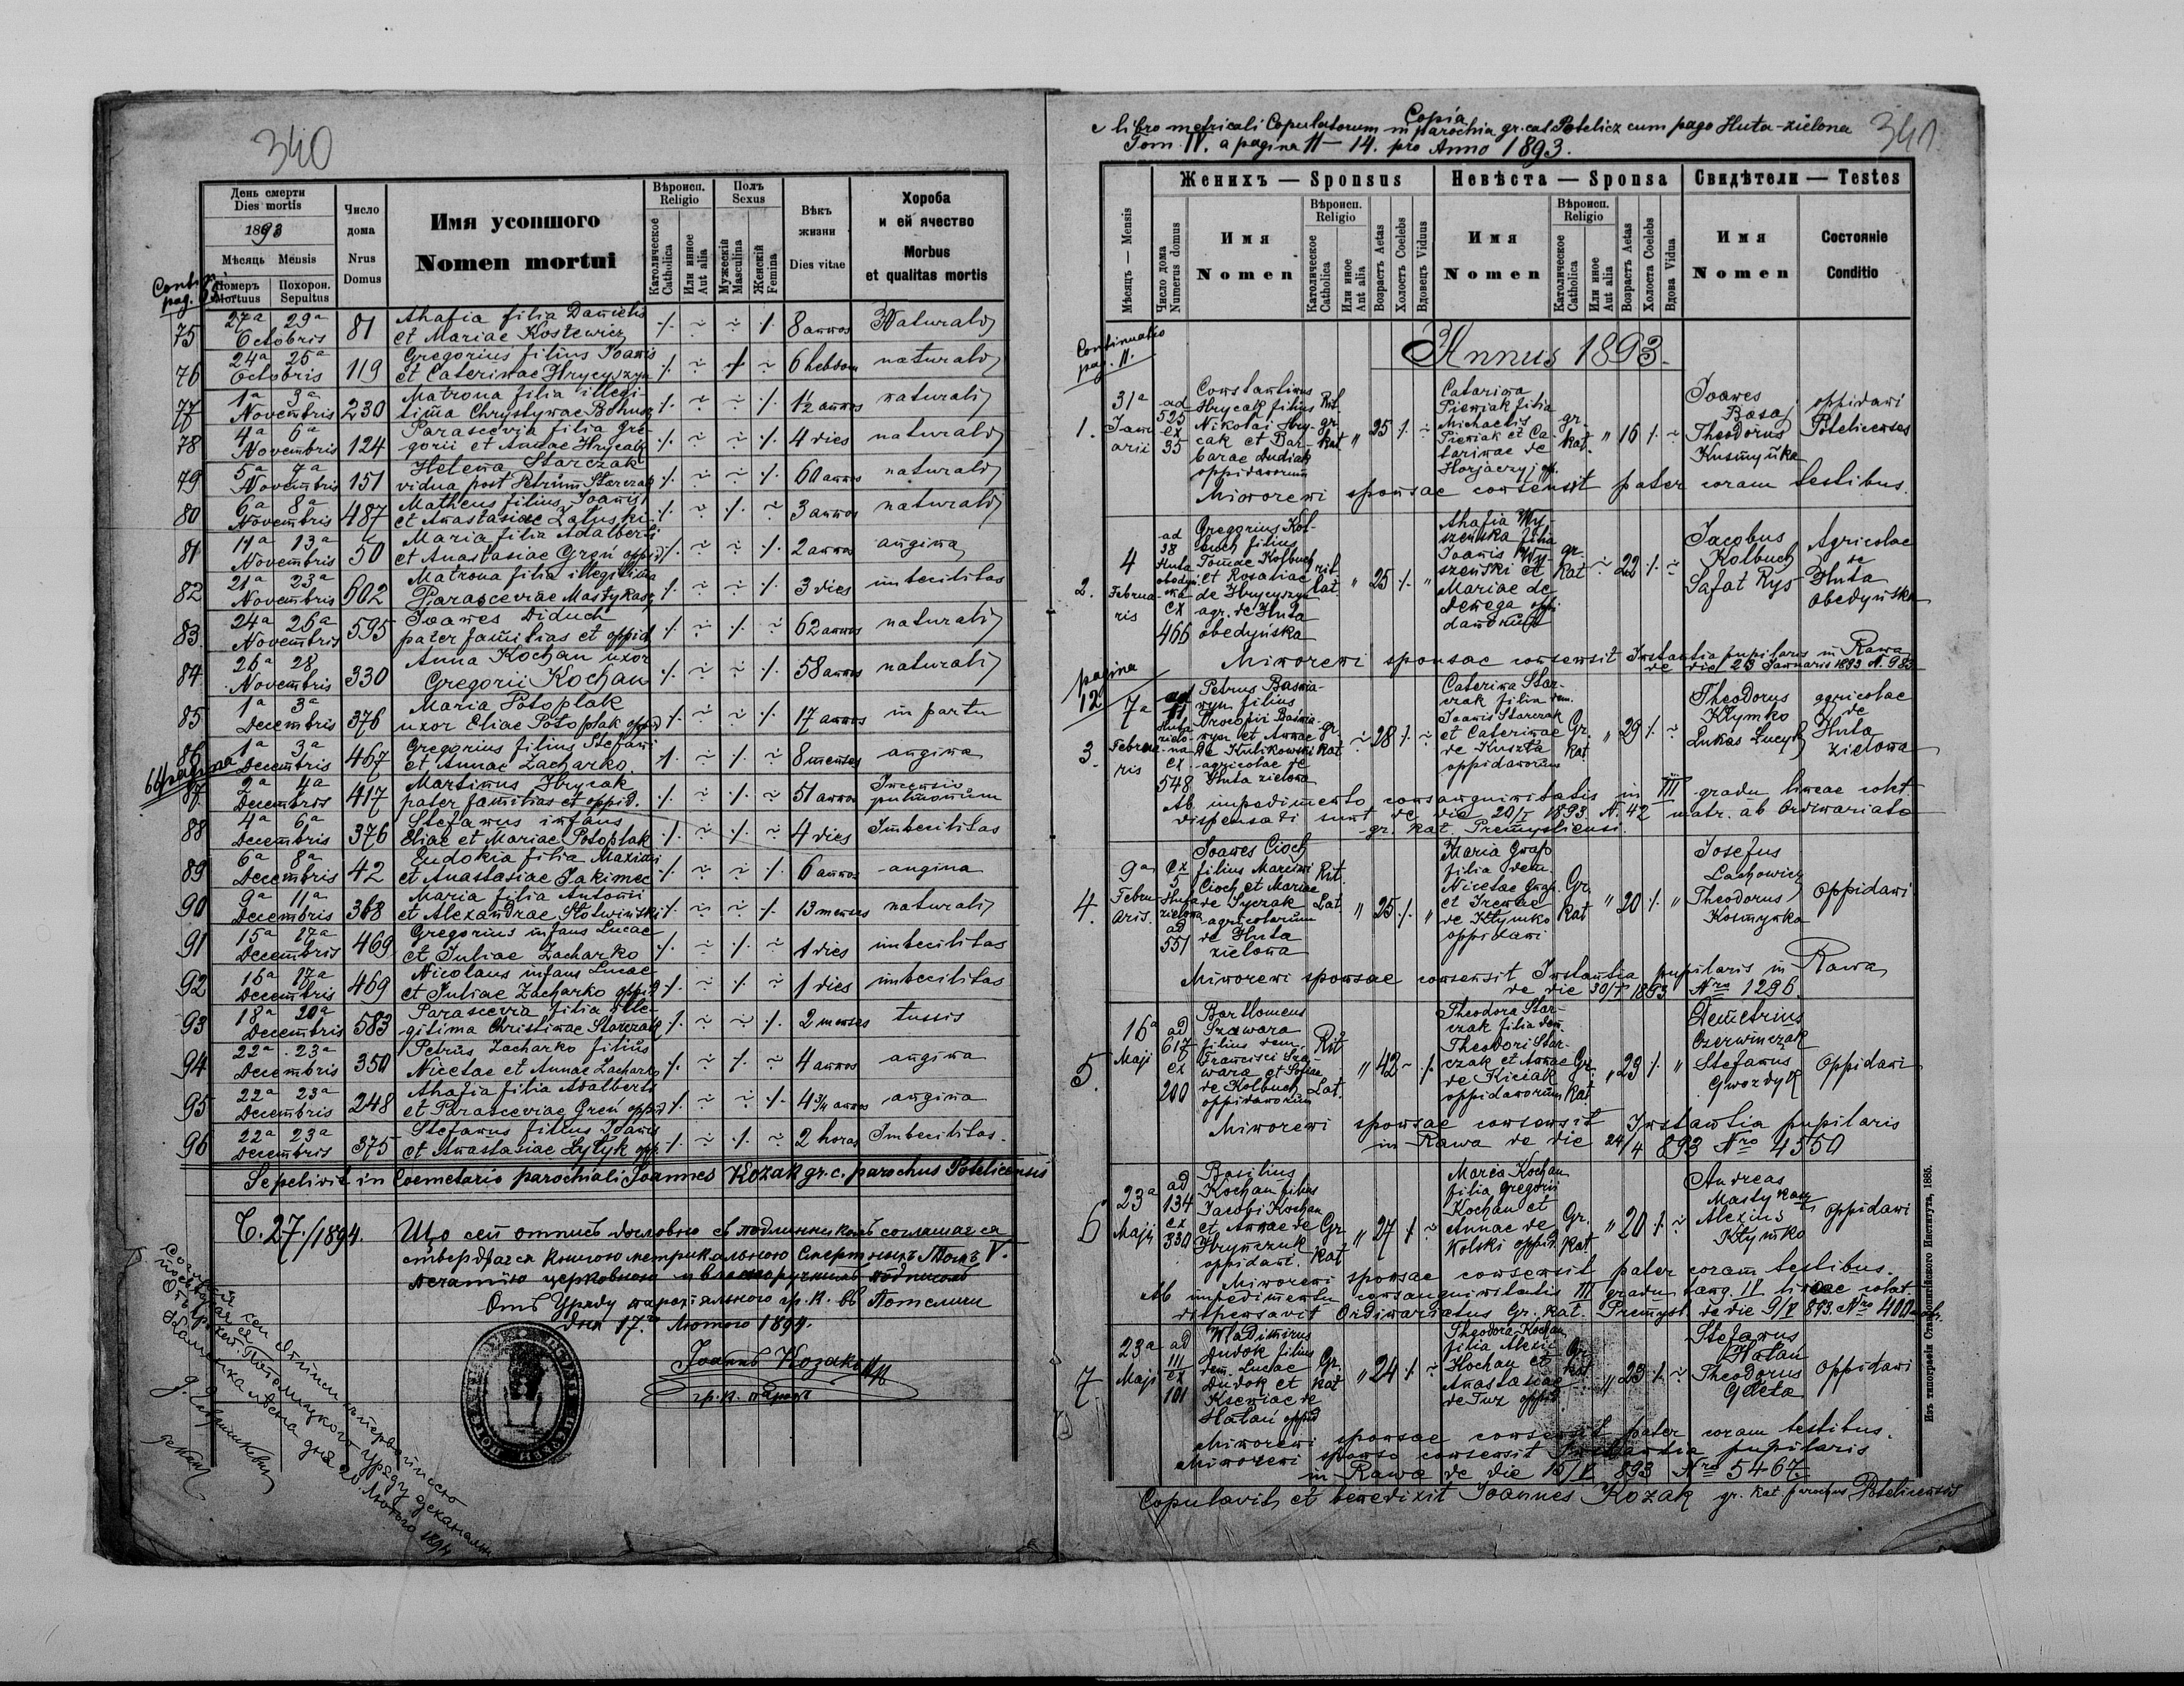 340
День смерти
Dies mortis
1893
Мѣсяць Mensis
Померъ Mortuus
Похорон. Sepultus
Число дома
Nrus Domus
Имя усопшого
Nomen mortui
Вѣроисп. Religio
Католическое Catholica
Или инное Aut alia
Полъ Sexus
Мужескій Masculina
Женскій Femina
Вѣкъ жизни
Dies vitae
Хороба и ей ячество
Morbus et qualitas mortis
75 27a 29a Octobris 81 Ahafia filia Danielis
et Mariae Kostewicz 8 annos Naturalis
76 24a 25a Octobris 119 Gregorius filius Joannis
et Caterinae Hrycyszyn 6 hebdom naturalis
77 1a 3a Novembris 230 Matrona filia illegi-
tima Chrystynae Bohusz 1/2 annos naturalis
78 4a 6a Novembris 124 Parascevia filia Gre-
gorii et Annae Hrycak 4 dies naturalis
79 5a 7a Novembris 151 Helena Starczak
vidua post Petrum Starczak 60 annos naturalis
80 6a 8a Novembris 487 Matheus filius Joannis
et Anastasiae Zaluski 3 annos naturalis
81 11a 13a Novembris 50 Maria filia Adalberti
et Anastasiae Greń oppid. 2 annos angina
82 21a 23a Novembris 602 Matrona filia illegitima
Parasceviae Mastykasz 3 dies imbecilitas
83. 24a 26a Novembris 595 Joannes Diduch
pater familias et oppid. 62 annos naturalis
84 26a 28 Novembris 330 Anna Kochan uxor
Gregorii Kochan 58 annos naturalis
85 1a 3a Decembris 376 Maria Potoplak
uxor Eliae Potoplak oppid 17 annos in partu
86 1a 3a Decembris 467 Gregorius filius Stefani
et Annae Zacharko. 8 menses angina
64 pagina
87 2a 4a Decembris 417 Martinus Hrycak
pater familias et oppid. 51 annos Incensio pulmonum
88 4a 6a Decembris 376 Stefanus infans
Eliae et Mariae Potoplak 4 dies Imbecilitas
89 6a 8a Decembris 42 Eudokia filia Maximi
et Anastasiae Jakimec 6 annos angina
90 9a 11a Decembris 368 Maria filia Antonii
et Alexandrae Stotwiński 13 menses naturalis
91 15a 17a Decembris 469 Gregorius infans Lucae
et Juliae Zacharko 1 dies imbecilitas
92 16a 17a Decembris 469 Nicolaus infans Lucae
et Juliae Zacharko oppid 1 dies imbecilitas
93 18a 20a Decembris 583 Parascevia filia ille-
gitima Christinae Starczak 2 menses tussis
94 22a 23a Decembris 350 Petrus Zacharko filius
Nicetae et Annae Zacharko 4 annos angina
95 22a 23a Decembris 248 Ahafia filia Adalberti
et Parasceviae Greń oppid 4 3/4 annos angina
96 22a 23a Decembris 375 Stefanus filius Joannis
et Anastasiae Lytyk opp. 2 horas Imbecilitas.
Sepelivit in Coemetario parochiali Joannes Kozak gr. c. parochus Potelicensis
Ч. 27./1894. Що сей отписъ дословно съ подлинникомъ соглашається
стверджаєся книгою метрикального Смертныхъ Томъ V.
печатію церковною и власноручнымъ подписомъ
Отъ Уряду парохіяльного гр. к. въ Потеличи
дня 17. Лютого 1894.
Іоаннъ Козакъ
гр. к. парохъ
341.
Copia
e libro metricali Copulatorum in parochia gr. cat Potelicz cum pago Huta-zielona
Tom. IV. a pagina 11 – 14. pro Anno 1893.
Женихъ — Sponsus
Невѣста — Sponsa
Свидѣтели — Testes
Мѣсяць — Mensis
Число дома Numerus domus
Имя Nomen
Вѣроисп. Religio
Католическое Catholica
Или иное Aut alia
Возрастъ Aetas
Холостъ Coelebs
Вдовецъ Viduus
Имя Nomen
Вѣроисп. Religio
Католическое Catholica
Или иное Aut alia
Возрастъ Aetas
Холоста Coelebs
Вдова Vidua
Имя Nomen
Состояніе Conditio
Continuatio
pag. 11.
Annus 1893.
1. 31a Januarii ad 525 ex 35
Constantinus
Hrycak filius
Nikolai Hry-
cak et Bar-
barae Dudiak
oppidanorum
Rit. gr. kat 25
Catarina
Pieniak filia
Michaelis
Pieniak et Ca-
tarinae de
gr. kat. 16
Joannes
Basaj
Theodorus
Kusmynka
oppidani
Potelicenses
Minoreni sponsae consensit pater coram testibus.
2. 4 Februaris ad 38 Huta obedynska ex 466
Gregorius Kol-
buch filius
Tomae Kolbuch
et Rosaliae
de Hrycyszyn
agr. de Huta
obedyńska
rit. lat 25
Ahafia Wy-
szeńska filia
Joannis Wy-
szeński et
Mariae de
Denega oppi-
danorum
gr. kat 22
Jacobus
Kolbuch
Safat Rys
Agricolae
de
Huta
Obedyńska
Minoreni sponsae consensit Instantia pupilaris in Rawa
de die 28 Januaris 1893 N. 983
pagina
12
3. 7a Februaris ad 11 Huta zielona ex 548
Petrus Basnia-
nyn filius
Procopii Basnia-
nyn et Annae
de Kulikowski
agricolae de
Huta zielona
gr. kat 28
Caterina Star-
czak filia dem.
Joannis Starczak
et Caterinae
de Kuszta
oppidanorum
Gr. Kat 29
Theodorus
Klymko
Lukas Lucyk
agricolae
de
Huta
zielona
Ab impedimento consanguinitatis in III gradu lineae colat.
dispensati sunt de die 20/I 1893. N. 42 matr. ab Ordinariato
gr. kat. Premysliensi.
4. 9a Februaris. ex 5 Huta zielona ad 551
Joannes Cioch
filius Marcini
Cioch et Mariae
de Syczak
agricolarum
de Huta
zielona
Rit. Lat. 25
Maria Gnap
filia dem.
Nicetae Gnap
et Irenae
de Klymko
oppidani
Gr. Kat 20
Josefus
Lachowicz
Theodorus
Kosmynka
Oppidani
Minoreni sponsae consensit Instantia pupilaris in Rawa
de die 30/I 1893 Nro 1296.
5. 16a Maji ad 617 ex 200
Bartlomeus
Szawara
filius dem.
Francisci Sza-
wara et Sofiae
de Kolbuch
oppidanorum
Rit Lat. 42
Theodora Star-
czak filia dem.
Theodori Star-
czak et Annae
de Kiciak
oppidanorum
Gr. Kat. 23
Demetrius
Czerwinczak
Stefanus
Gwozdyk
Oppidani
Minoreni sponsae consensit Instantia pupilaris
in Rawa de die 24/4 893 Nro 4550
6 23a Maji ad 134 ex 330
Basilius
Kochan filius
Jacobi Kochan
et Annae de
Hrynczuk
oppidani.
Gr. Kat 27
Maria Kochan
filia Gregorii
Kochan et
Annae de
Kolski oppid.
Gr. Kat 20
Andreas
Mastykasz
Alexius
Klymko
Oppidani
Minoreni sponsae consensit pater coram testibus.
Ab impedimentu consanguinitatis III gradu tang. IV lineae colat.
dispensavit Ordinariatus Gr. Kat. Premysl. de die 9/V 893. Nro 400
7 23a Maji ad 111 ex 101
Wladimirus
Dudok filius
dem. Lucae
Dudok et
Kseniae de
Hałań oppid
Gr. Kat 24
Theodora Kochan
filia Alexii
Kochan et
Anastasiae
de Tuz oppid.
Gr. Kat 23
Stefanus
Hałań
Theodorus
Geleta
Oppidani
Minoreni sponsae consensit pater coram testibus.
Minoreni sponso consensit Instantia pupilaris
in Rawa de die 15/V 893 Nro 5467.
Copulavit et benedixit Joannes Kozak gr. kat. parochus Potelicensis
Изъ типографіи Ставропигійского Института, 1885.